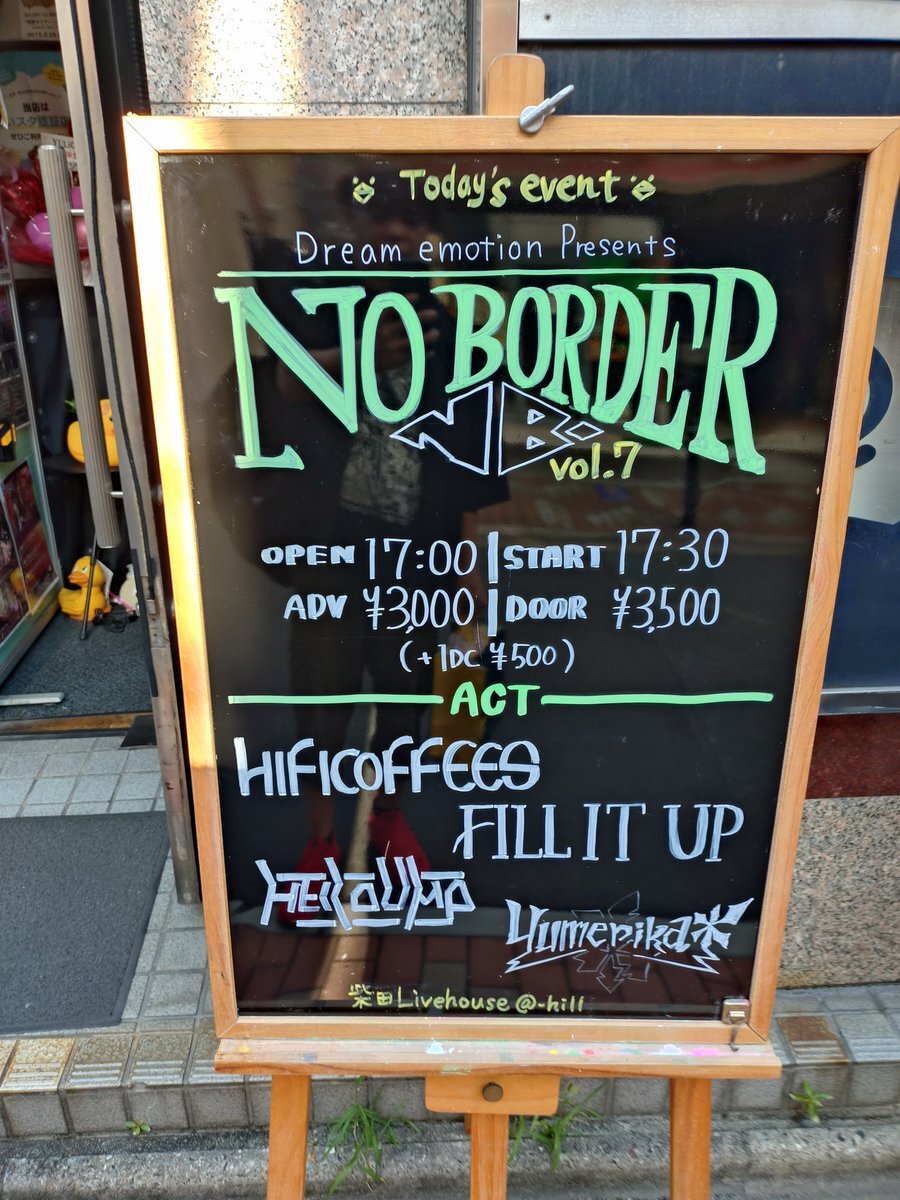 当店は
ぜひご利用
Today's event
Dream emotion Presents
NO BORDER
NB
vol.7
OPEN 17:00 | START 17:30
ADV ¥3,000 | DOOR ¥3,500
(+1DC ¥500)
ACT
HIFICOFFEES
FILL IT UP
Yumerika*
柴田Livehouse @-hill